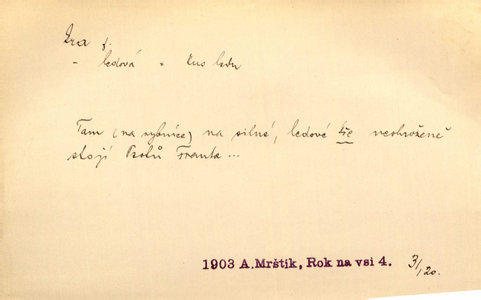 kra f.
- ledová = kus ledu
Tam (na rybníce) na silné, ledové kře neohroženě
stojí Franta ...
1903 A. Mrštík, Rok na vsi 4. 3/120.